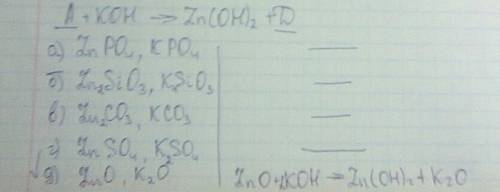 A + KOH → Zn(OH)₂ + D
а) ZnPO₄, KPO₄ —
б) Zn₂SiO₃, K₂SiO₃ —
в) Zn₂CO₃, KCO₃ —
г) ZnSO₄, K₂SO₄ —
д) ZnO, K₂O ZnO + 2KOH → Zn(OH)₂ + K₂O